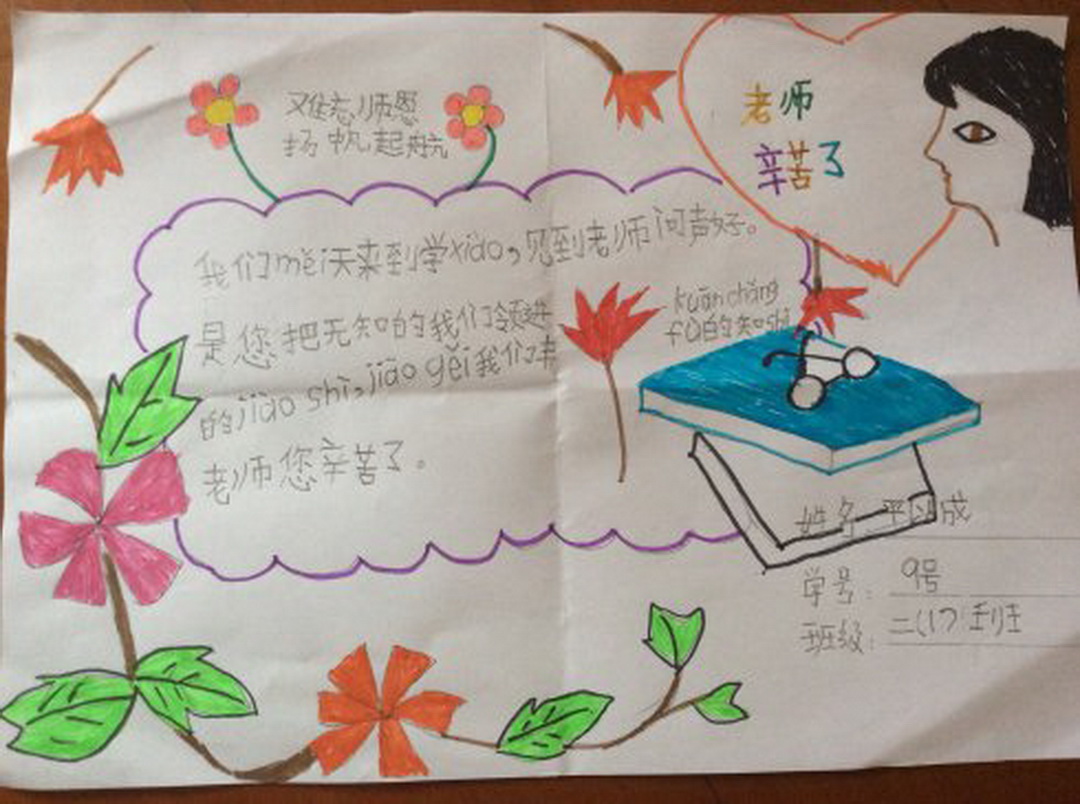 难忘师恩
扬帆起航
老师
辛苦了
我们měi天来到学xiào，见到老师问声好。
是您把无知的我们领进
kuānchǎng
的jiào shì，jiāo gěi我们
fù的知shi
老师您辛苦了。
姓名 平以成
学号：9号
班级：二（17）班